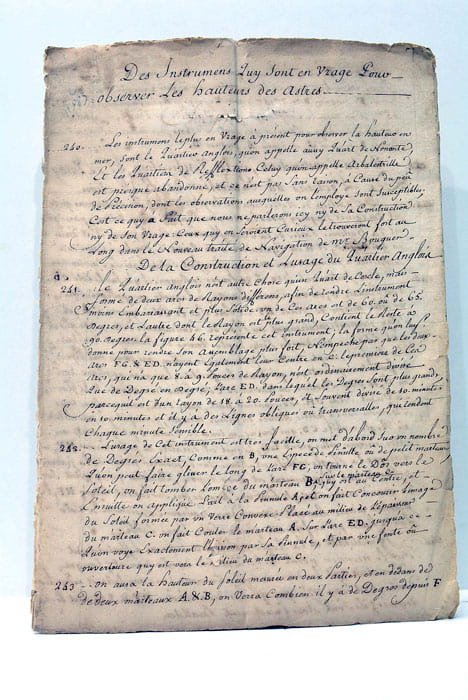 Des Instrumens Quy Sont en Usage Pour
observer Les hauteurs des Astres
240. Les instrumens le plus en Usage a present pour observer la hauteur en
mer, sont le Quartier Anglois, qu'on appelle aussy Quart de Nonante
Et les Quartiers de Reflextions Celuy qu'on appelle Arbalestrille
est presque abandonné, et ce n'est pas Sans raison, a Cause du peu
de Precision, dont les observations auxquelles on L'employe sont Susceptibles,
C'est ce quy a fait que nous ne parlerons icy ny de Sa Construction
ny de Son Usage. Ceux quy en Seroient Curieux Le trouveront fort au
Long dans Le Nouveau traité de Navigation de Mr. Bouguer
De La Construction et L'usage du Quartier Anglois
241. Le Quartier Anglois n'est autre Chose qu'un Quart de Cercle, mais
formé de deux arcs de Rayons differens, afin de rendre L'instrument
moins Embarassant et plus Solide. un de Ces arcs est de 60. ou de 65.
Degrés, et L'autre dont le Rayon est plus grand, Contient le Reste a
90. Degrés. la figure 46. represente cet instrument; la forme qu'on luy
donne pour rendre Son assemblage plus fait, n'empeche pas que les deux
arcs FG & ED. n'ayent Egalement leur Centre en C. le premier de Ces
arcs, qui n'a que 8. a 9. pouces de Rayon, n'est ordinairement divisé
que de Degré en Degré; L'arc ED. dans lequel les Degrés Sont plus grands,
parcequ'il est d'un rayon de 18. a 20. pouces, est Souvent divisé de 10. minutes
en 10. minutes et il y a des Lignes obliques ou transversales, qui etendent
Chaque minute Sensible.
242. L'usage de Cet instrument est tres facille, on met d'abord Sur un nombre
de Degrés Exact, Comme en B, une Espece de Pinulle ou de petit marteau
Qu'on peut faire glisser le long de L'arc FG; on tourne le Dos vers le
Soleil, on fait tomber L'ombre du marteau B, Sur le marteau C. quy est au Centre, et
Ensuitte on applique L'œil a la Pinulle A, et on fait Concourir L'image
du Soleil formée par un Verre Convexe Placé au milieu de L'epaisseur
du marteau C. on fait Couler le marteau A. Sur L'arc ED. jusqu'a ce
Qu'on voye Exactement L'horison par Sa Pinnule, et par une fente ou
ouverture quy est vers le milieu du marteau C.
243. on aura la hauteur du Soleil mesurée en deux Parties, et en dedans de
de deux marteaux A & B, on Verra Combien il y a de Degrés depuis F